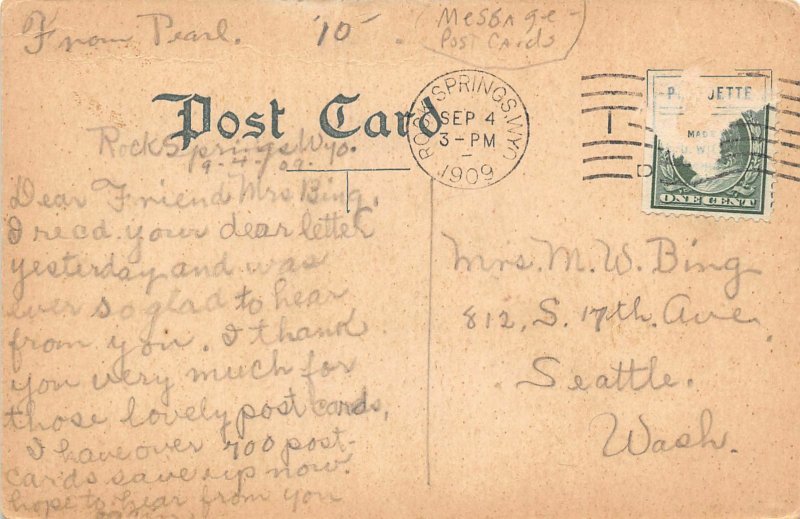 From Pearl. '10
Message -
Post Cards
Post Card
ROCK SPRINGS, WYO.
SEP 4
3-PM
1909
1
JETTE
MADE
ONE CENT
Rock Springs Wyo.
9-4-'09.
Dear Friend Mrs Bing,
I recd. your dear letter
yesterday and was
ever so glad to hear
from you. I thank
you very much for
those lovely post cards,
I have over 700 post-
cards save up now.
hope to hear from you
Mrs. M. W. Bing
812, S. 17th. Ave
Seattle.
Wash.